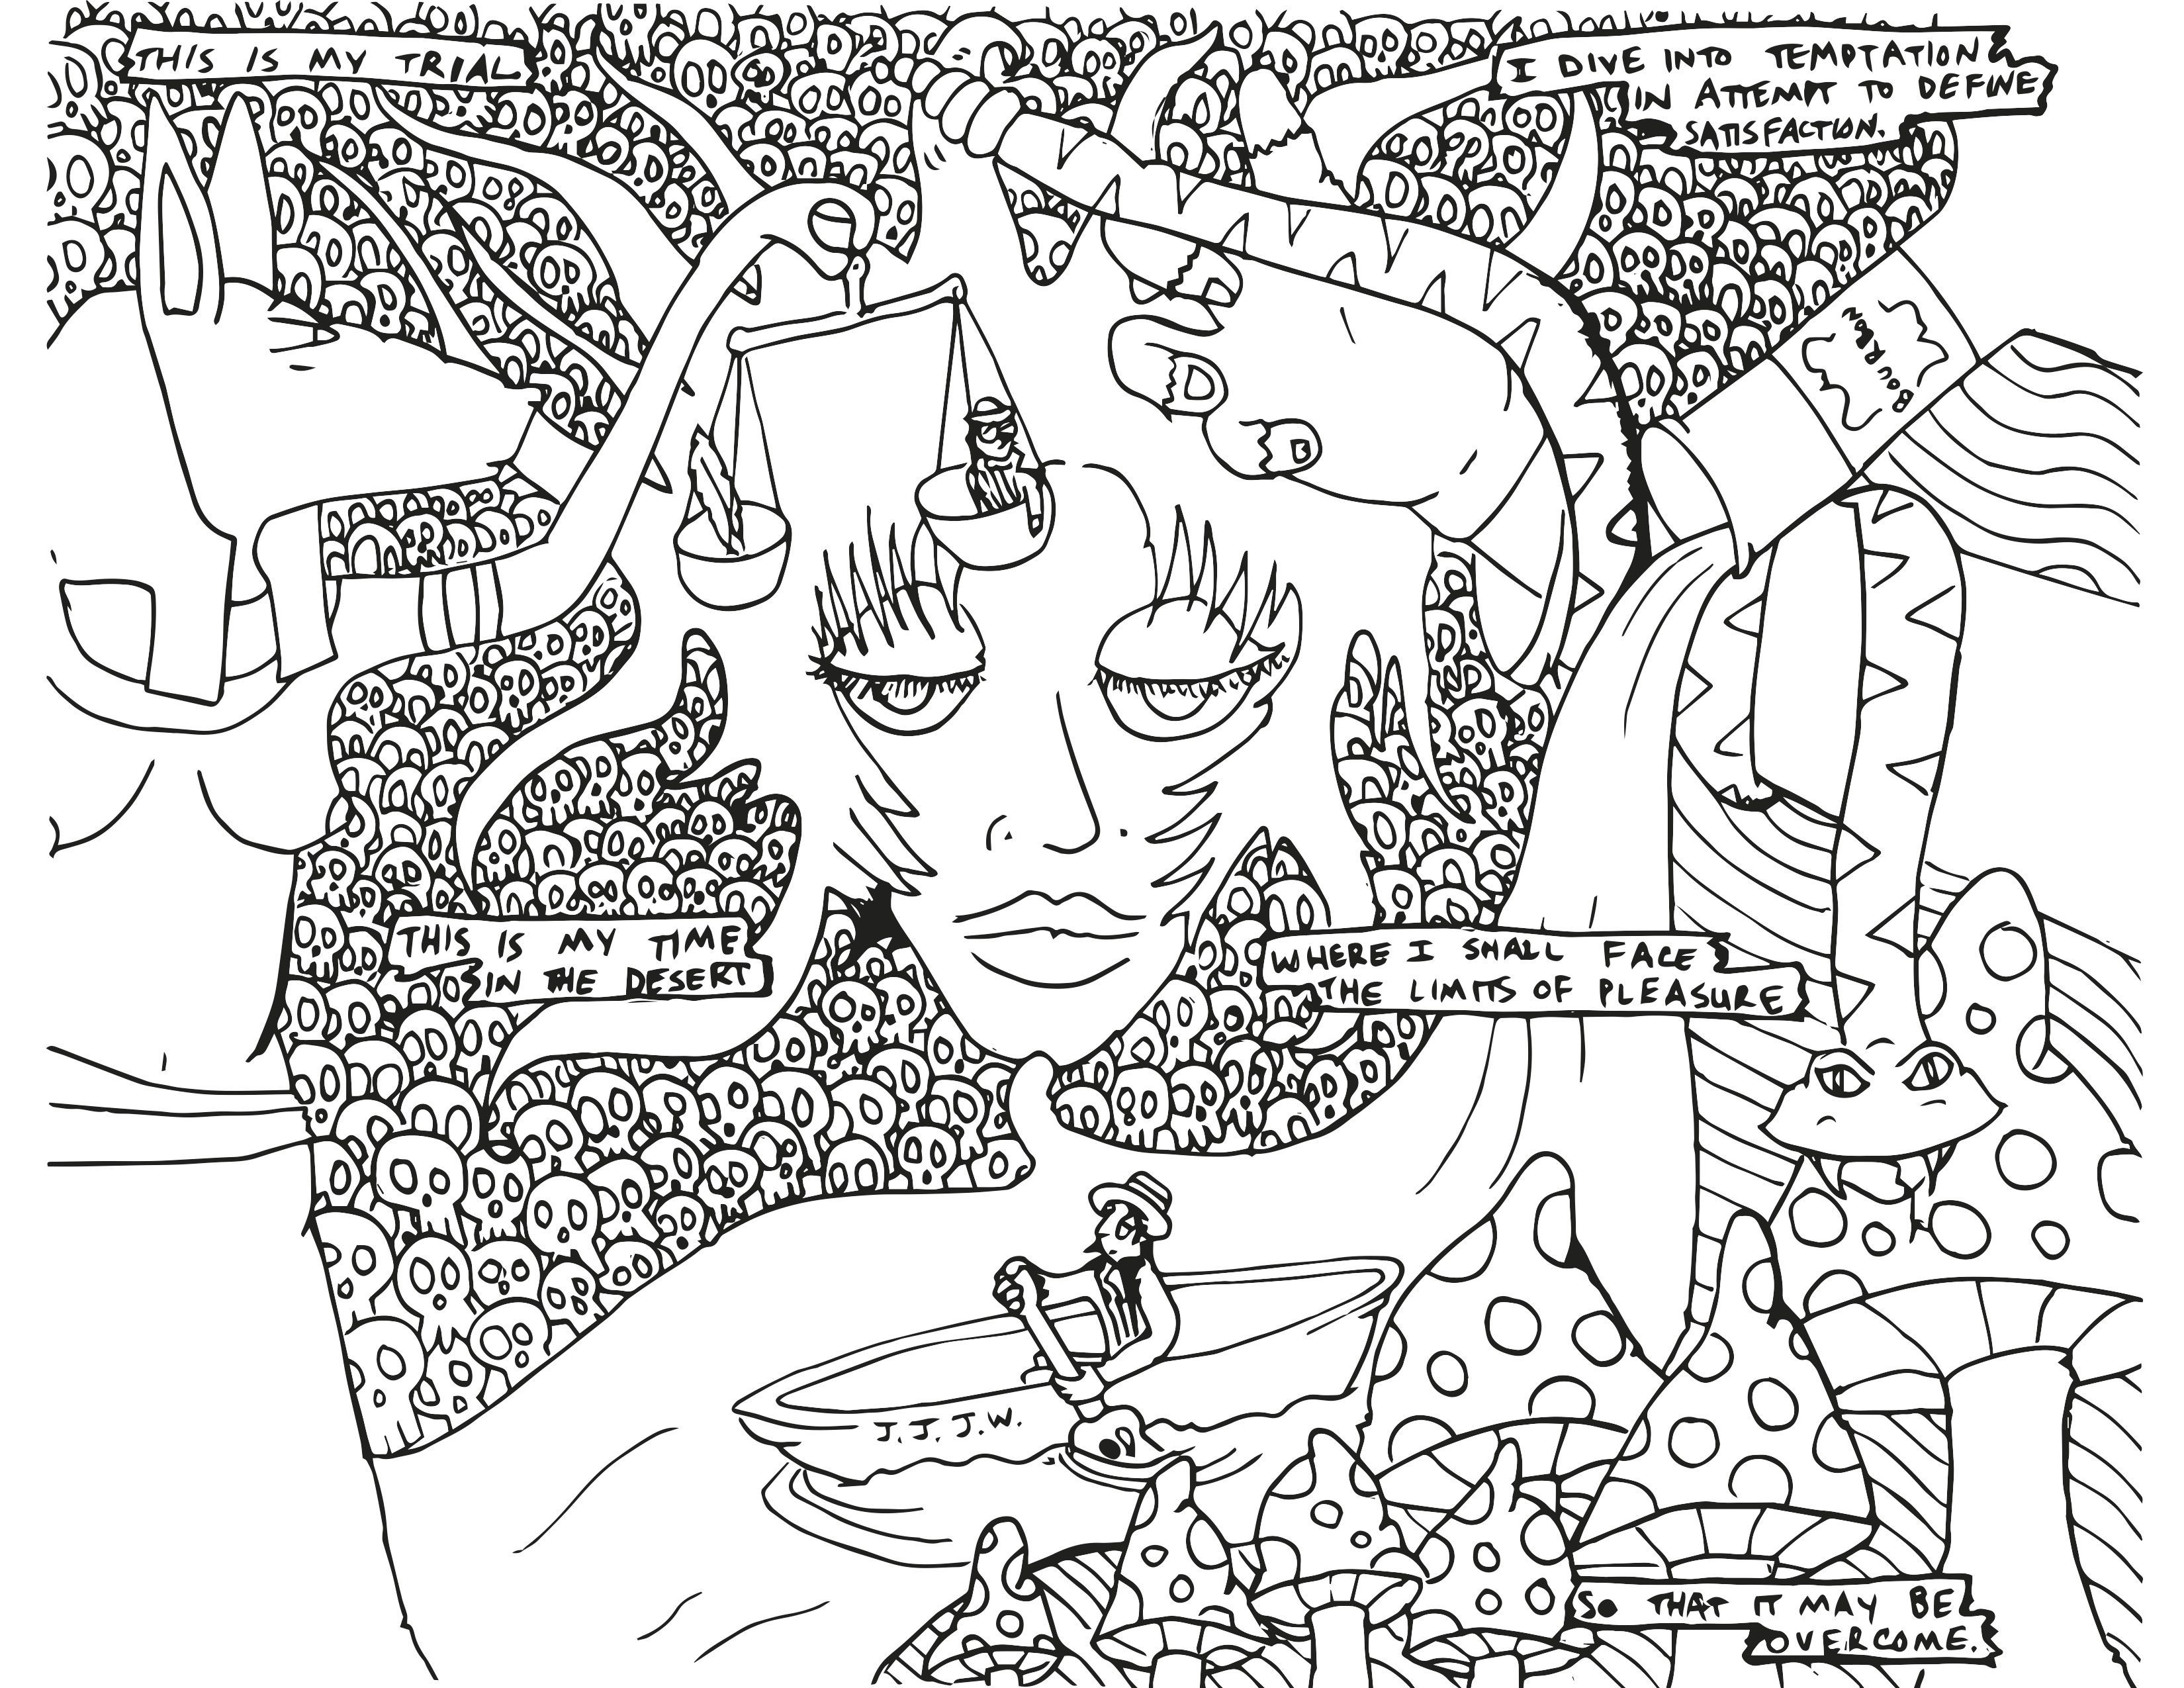 THIS IS MY TRIAL
I DIVE INTO TEMPTATION
IN ATTEMPT TO DEFINE
SATISFACTION.
THIS IS MY TIME
IN THE DESERT
WHERE I SHALL FACE
THE LIMITS OF PLEASURE
J.J.J.W.
SO THAT IT MAY BE
OVERCOME.